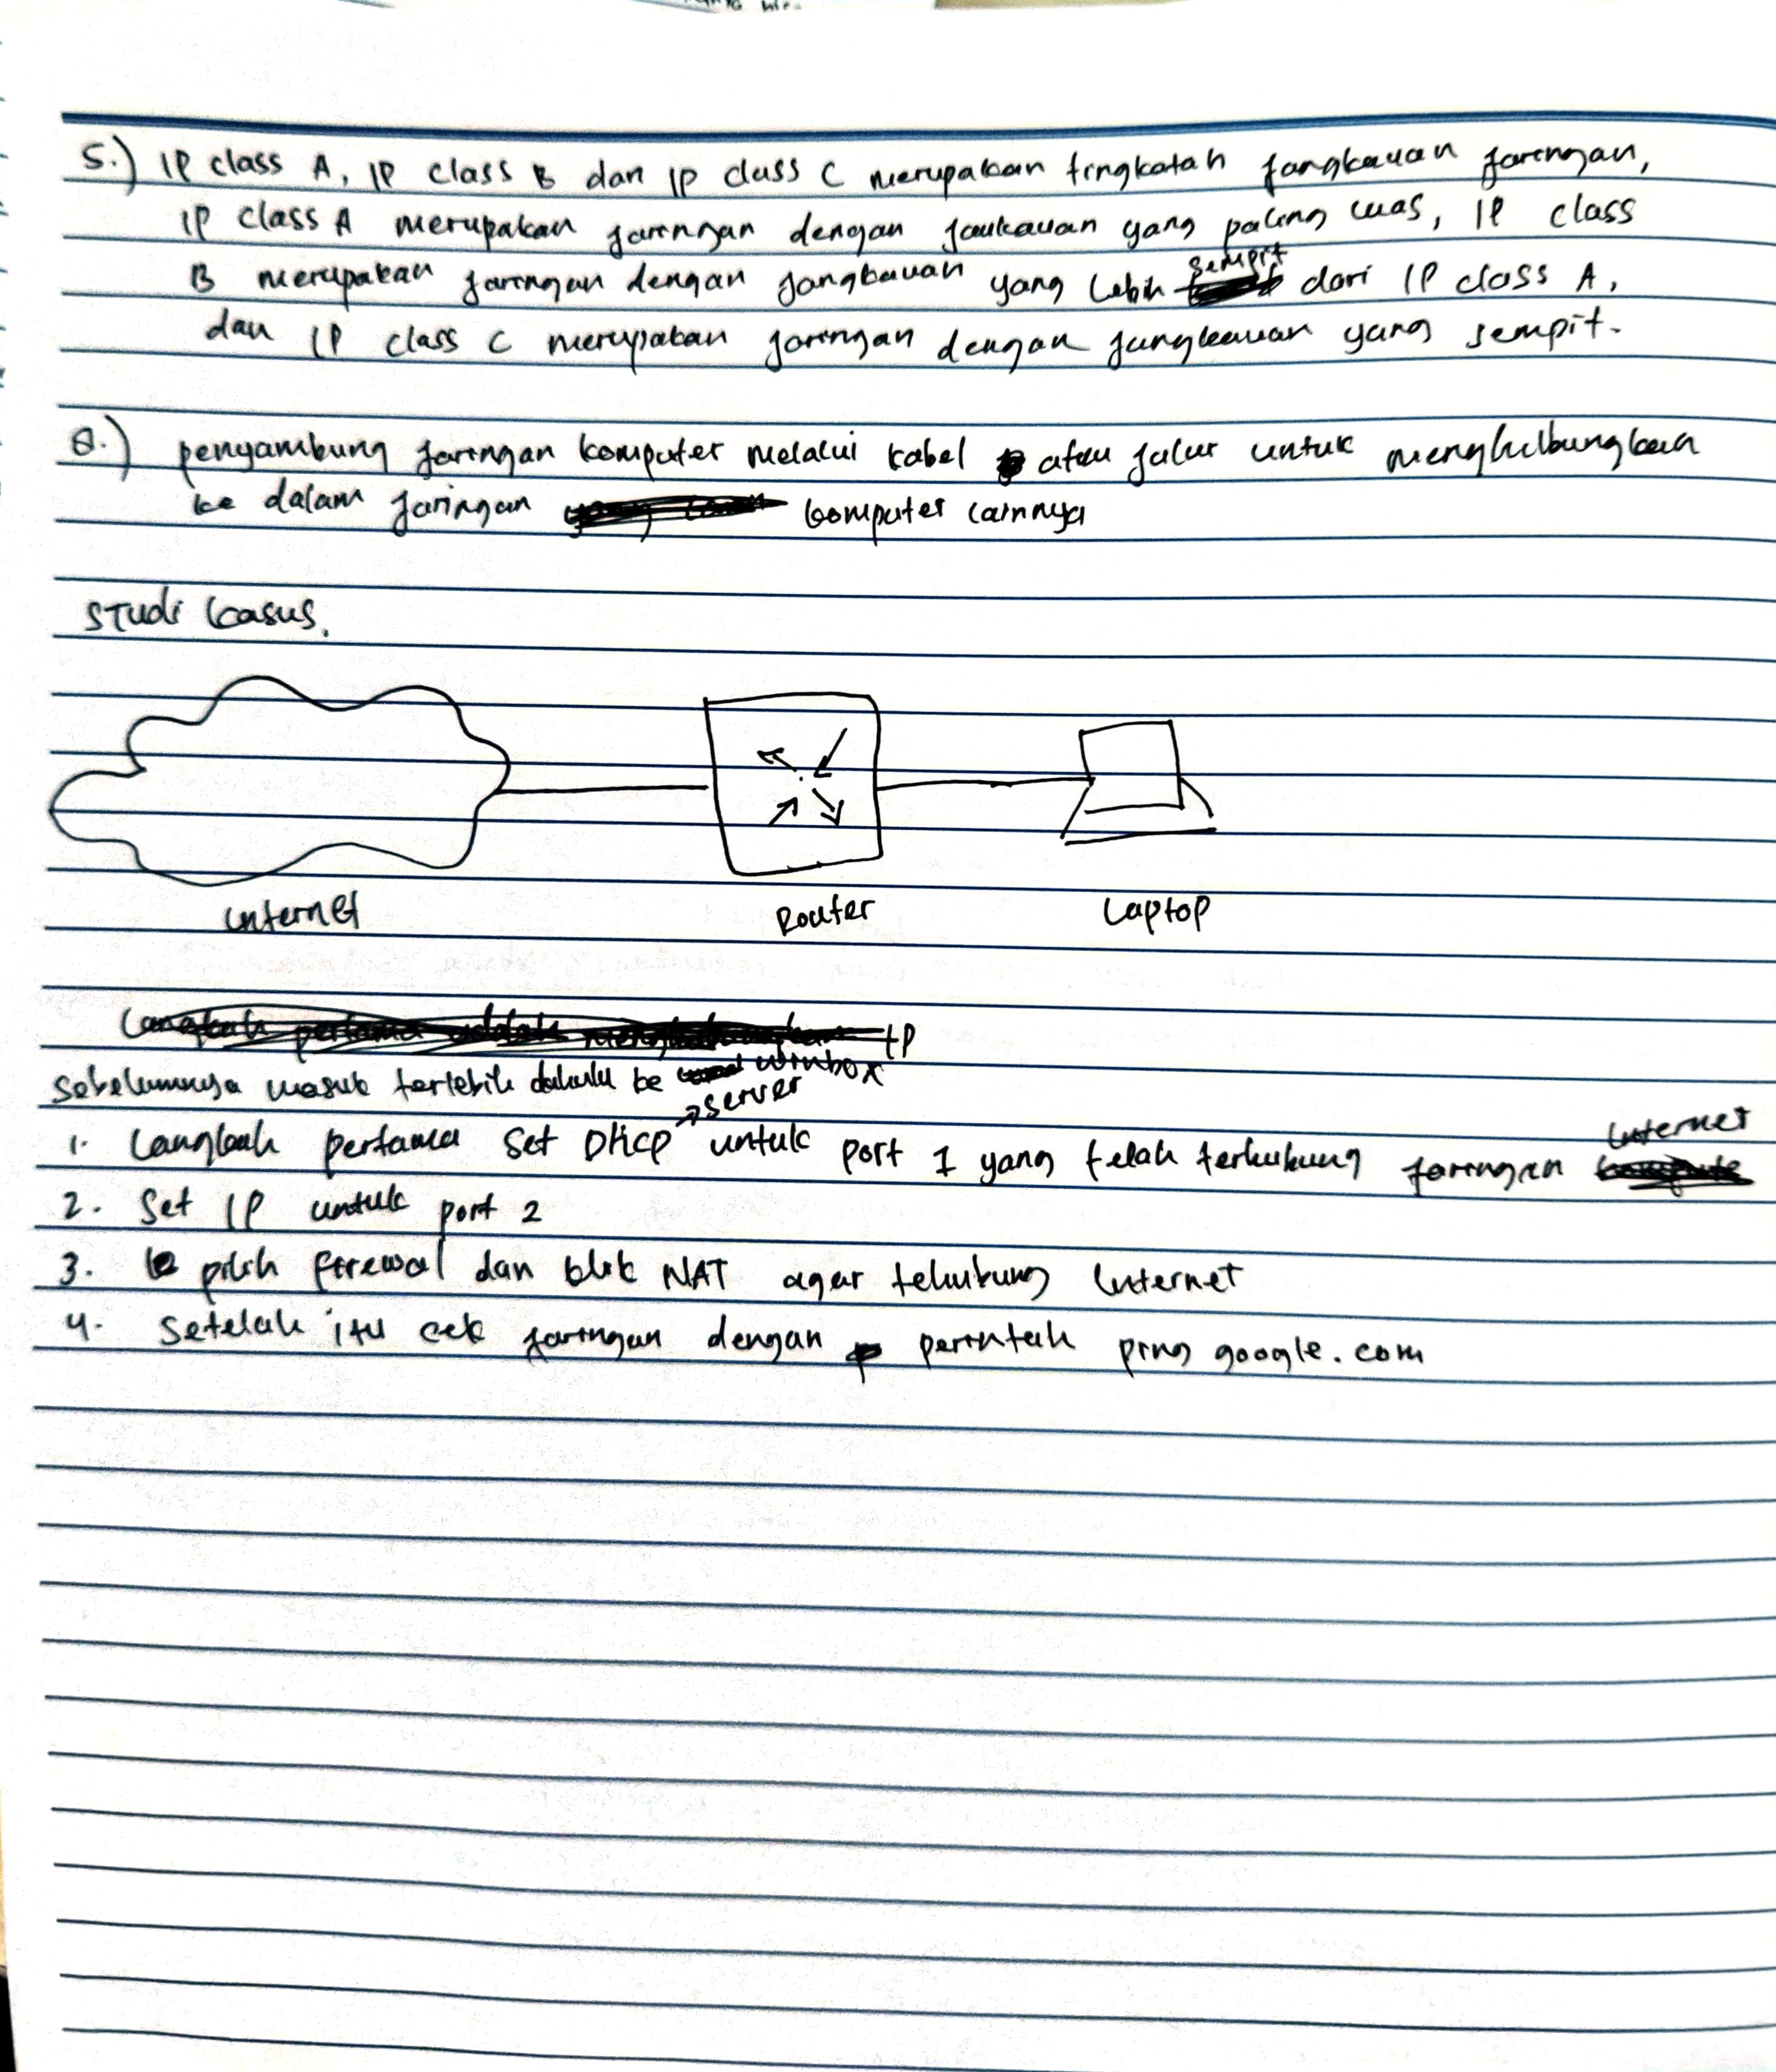 5.) IP class A, IP class B dan IP class C merupakan tingkatan jangkauan jaringan,
IP class A merupakan jaringan dengan jaukauan yang paling luas, IP class
B merupakan jaringan dengan jangkauan yang lebih sempit dari IP class A,
dan IP class C merupakan jaringan dengan jangkauan yang sempit.
8.) penyambung jaringan komputer melalui kabel atau jalur untuk menghubungkan
ke dalam jaringan komputer lainnya
Studi kasus.
Internet Router Laptop
Langkah pertama adalah menghubungkan IP
Sebelumnya masuk terlebih dahulu ke winbox
→ server
1. Langkah pertama Set DHCP untuk port 1 yang telah terhubung jaringan Internet
2. Set IP untuk port 2
3. pilih firewal dan klik NAT agar tehubung Internet
4. Setelah itu cek jaringan dengan perintah ping google.com